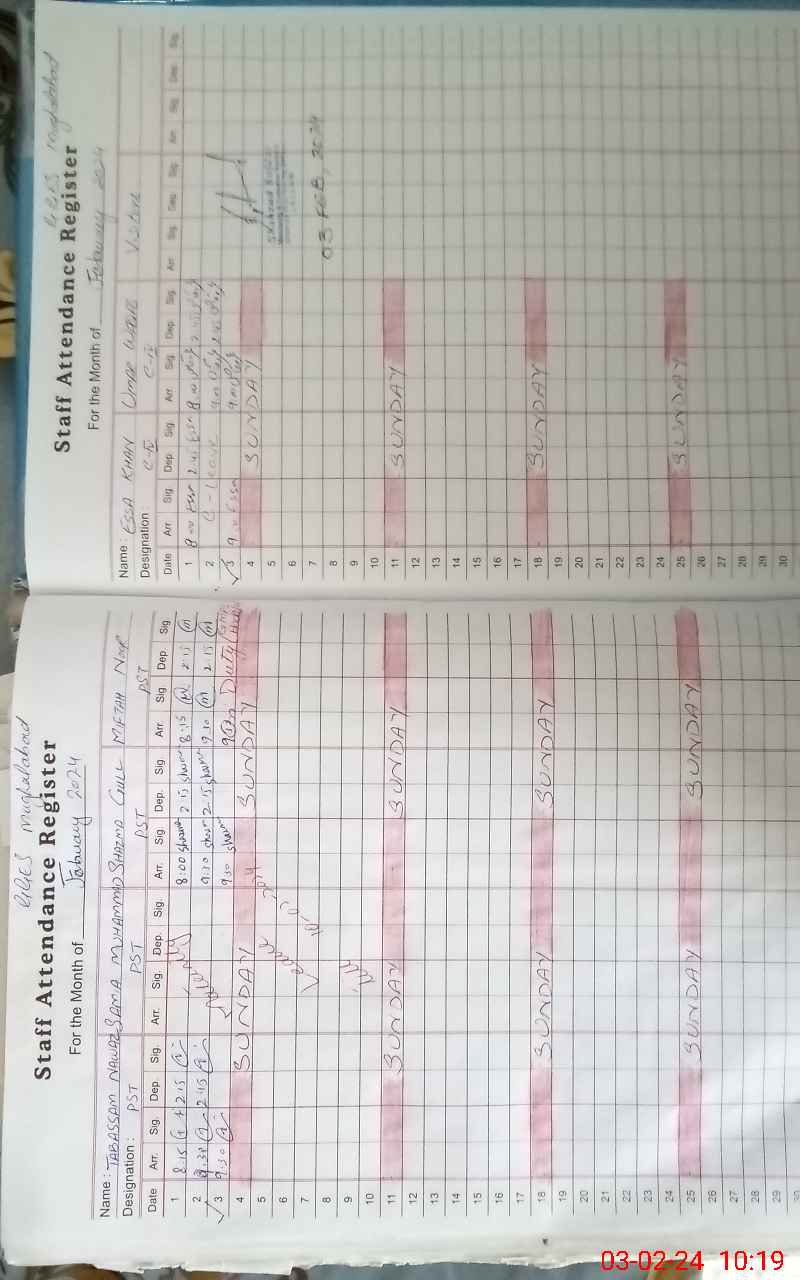 GGES Mughalabad
Staff Attendance Register
For the Month of February 2024
Name : TABASSAM NAWAZ SAMA MUHAMMAD SHAZMA GULL MIFTAH NOOR
Designation : PST PST PST PST
Date Arr. Sig. Dep. Sig. Arr. Sig. Dep. Sig. Arr. Sig. Dep. Sig. Arr. Sig. Dep. Sig.
1 8:15 2:15 8:00 2:15 8:15 2:15
2 9:30 2:15 9:30 2:15 9:30 2:15
3 9:30 9:30 On Duty
4 SUNDAY SUNDAY SUNDAY
5
6
7
8
9
10
11 SUNDAY SUNDAY SUNDAY
12
13
14
15
16
17
18 SUNDAY SUNDAY SUNDAY
19
20
21
22
23
24
25 SUNDAY SUNDAY SUNDAY
26
27
28
29
30
Maternity
Leave
GGES Mughalabad
Staff Attendance Register
For the Month of February 2024
Name : ESSA KHAN
Designation : C-IV C-IV Visitor
Date Arr. Sig. Dep. Sig. Arr. Sig. Dep. Sig. Arr. Sig. Dep. Sig. Arr. Sig. Dep. Sig.
1 8:00 Essa 2:45 Essa 8:00 2:45
2 C-Leave 9:00 2:45
3 9:00 Essa 9:00
4 SUNDAY
5
6
7
8
9
10
11 SUNDAY
12
13
14
15
16
17
18 SUNDAY
19
20
21
22
23
24
25 SUNDAY
26
27
28
29
30
03 FEB, 2024
03-02-24 10:19